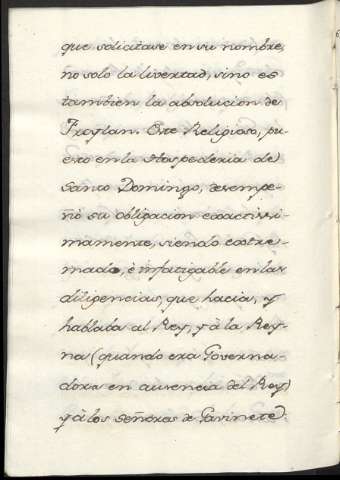 que solicitase en su nombre,
no solo la livertad, sino es
tambien la absolucion de
Froylan. Este Religioso, pu-
esto en la Hospederia de
Santo Domingo, desempe-
ñó su obligacion exactissi-
mamente, siendo extre-
mado, è infatigable en las
diligencias, que hacia, y
hablaba al Rey, y à la Rey-
na (quando era Governa-
dora en ausencia del Rey)
y à los Señores de Gavinete.